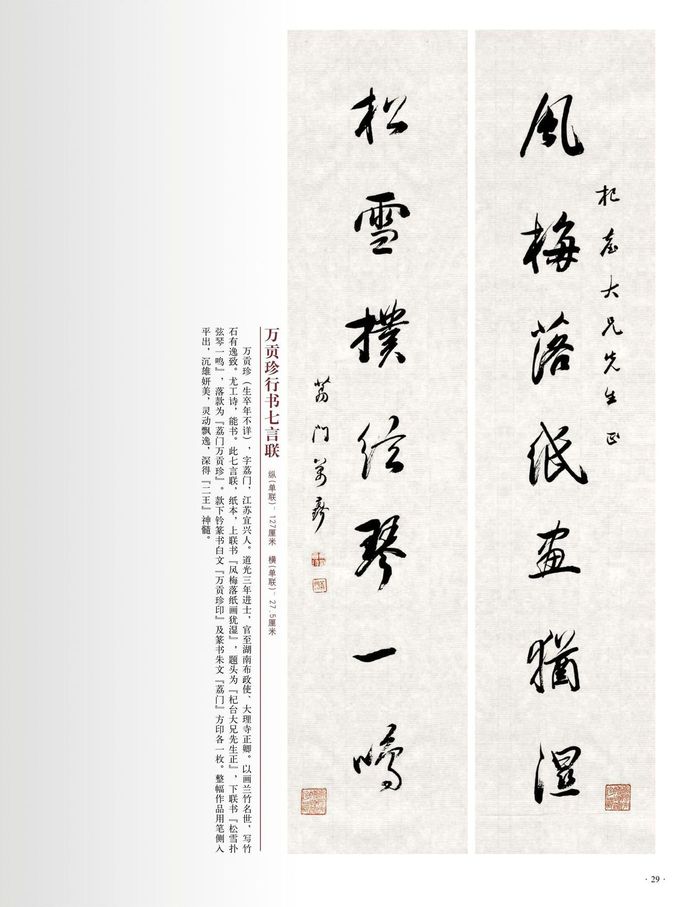 風梅落紙畫猶濕
杞臺大兄先生正
松雪撲絃琴一鳴
荔門萬貢珍
万贡珍行书七言联
纵(单联)- 127厘米 横(单联)- 27.5厘米
万贡珍（生卒年不详），字荔门，江苏宜兴人。道光三年进士，官至湖南布政使、大理寺正卿。以画兰竹名世，写竹
石有逸致。尤工诗，能书。此七言联，纸本，上联书『风梅落纸画犹湿』，题头为『杞台大兄先生正』，下联书『松雪扑
弦琴一鸣』，落款为『荔门万贡珍』。款下钤篆书白文『万贡珍印』及篆书朱文『荔门』方印各一枚。整幅作品用笔侧入
平出，沉雄妍美，灵动飘逸，深得『二王』神髓。
· 29 ·